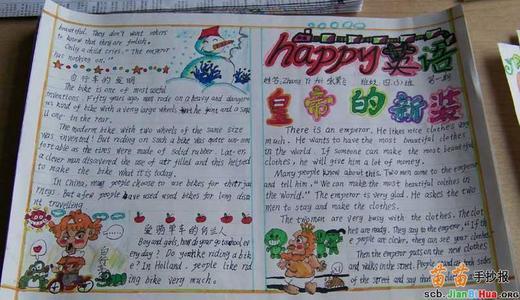 beautiful. They don't want others
to know that they are foolish.
Only a child cries. "The emperor
has nothing on."
自行车的发明
The bike is one of most useful
inventions. Fifty years ago, man rode on a heavy and danger
us kind of bike with a very large wheels
one in the rear.
The modern bike with two wheels of the same size
was invented! But riding on such a bike was quite un-com
fortable as the tires were made of solid rubber. Later
a clever man discovered the use of air filled and this helped
to make the bike what it is today.
In China, many people choose to use bikes for their jou
rneys. But a few people have used used bikes for long dist
travelling
爱骑单车的
Boy and girls, how do your go to school ev
eryday? Do you like riding a bik
e? In Holland, people like rid
ing bike very much.
自行车
happy英语
姓名: Zhang 班级 四 第一期
皇帝的新装
There is an emperor. He likes nice clothes very
much. He wants to have the most beautiful clothes
in the world. If someone can make the most beautiful
clothes, he will give him a lot of money.
Many people know about this. Two men come to the emperor
and tell him, "We can make the most beautiful clothes in
the world." The emperor is very glad. He asks the two
men to stay and make the clothes.
The two men are very busy with the clothes. The clot
hes are ready. They say to the emperor, "If the
people are clever, they can see you.
The emperor puts on the new clothes
and walks in the street. People on both sides
of the street and say that
番番手抄报
scb.JianBiHua.org